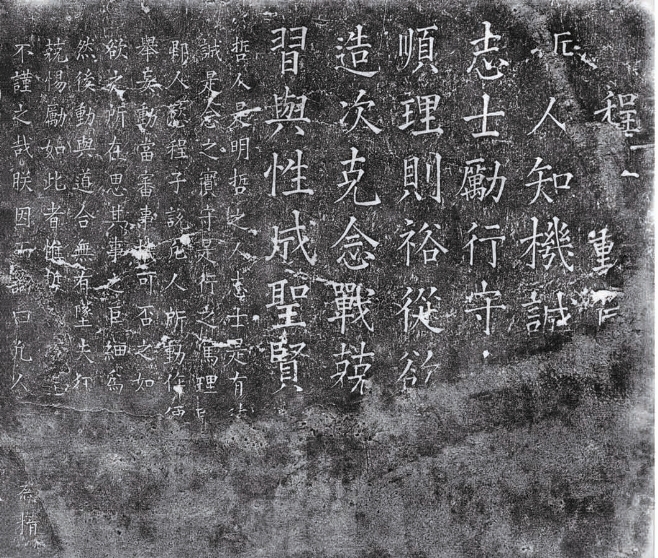 程
人知機誠
志士勵行守
順理則裕從欲
造次克念戰兢
習與性成聖賢
哲人是明哲之人志士是有
誠是念之實守是行之篤理
人程子說凡人所動作便
舉妄動當審事機可否之如
欲之所在思其事之巨細爲
然後動與道合無有墜失
兢惕勵如此者惟
不謹之哉朕因而論曰凡人怠惰